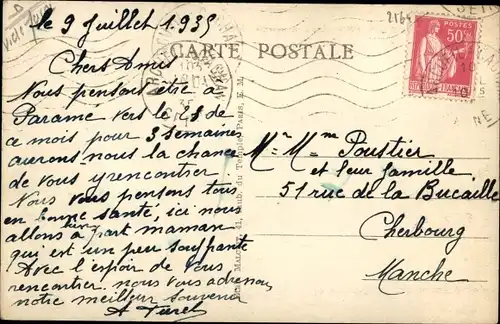 le 9 Juillet 1.935
CARTE POSTALE
POSTES
50c
2164
Chers Amis
Nous pensons être à
Paramé vers le 23 de
ce mois pour 3 semaines
aurons nous la chance
de vous y rencontrer
Nous vous pensons tous
en bonne santé, ici nous
allons bien à part maman
qui est un peu souffrante
Avec l'espoir de vous
rencontrer. nous vous adressons
notre meilleur souvenir
A Turel
Mr Mme Poustier
et leur famille
51 rue de la Bucaille
Cherbourg
Manche